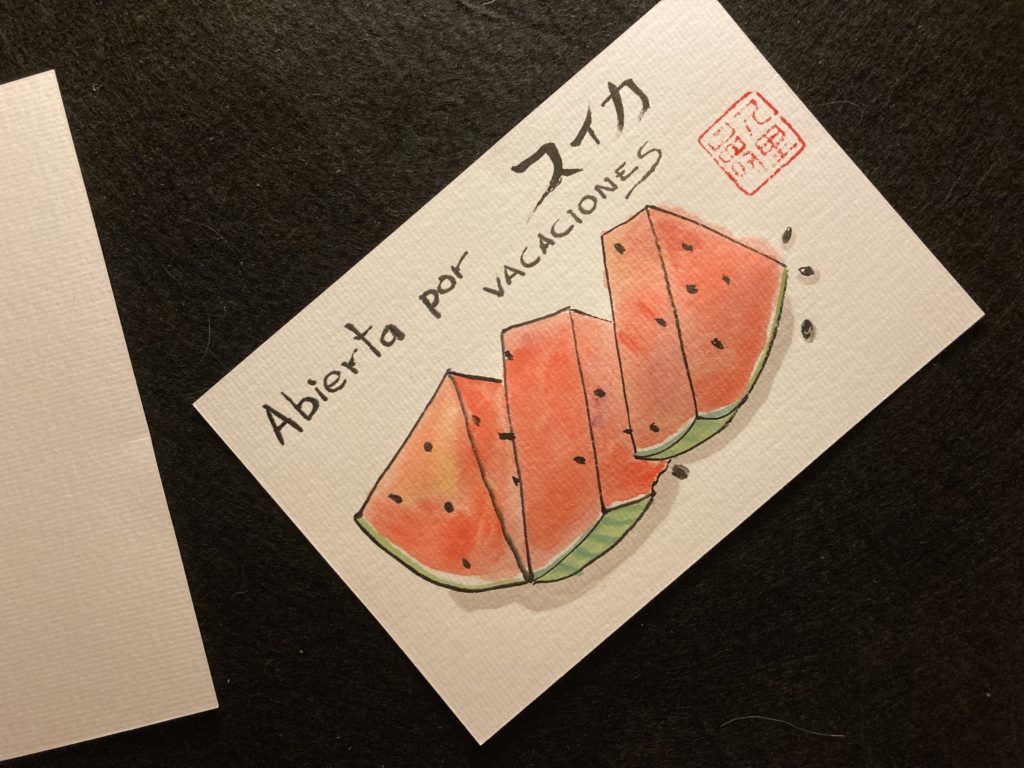 スイカ
Abierta por
VACACIONES